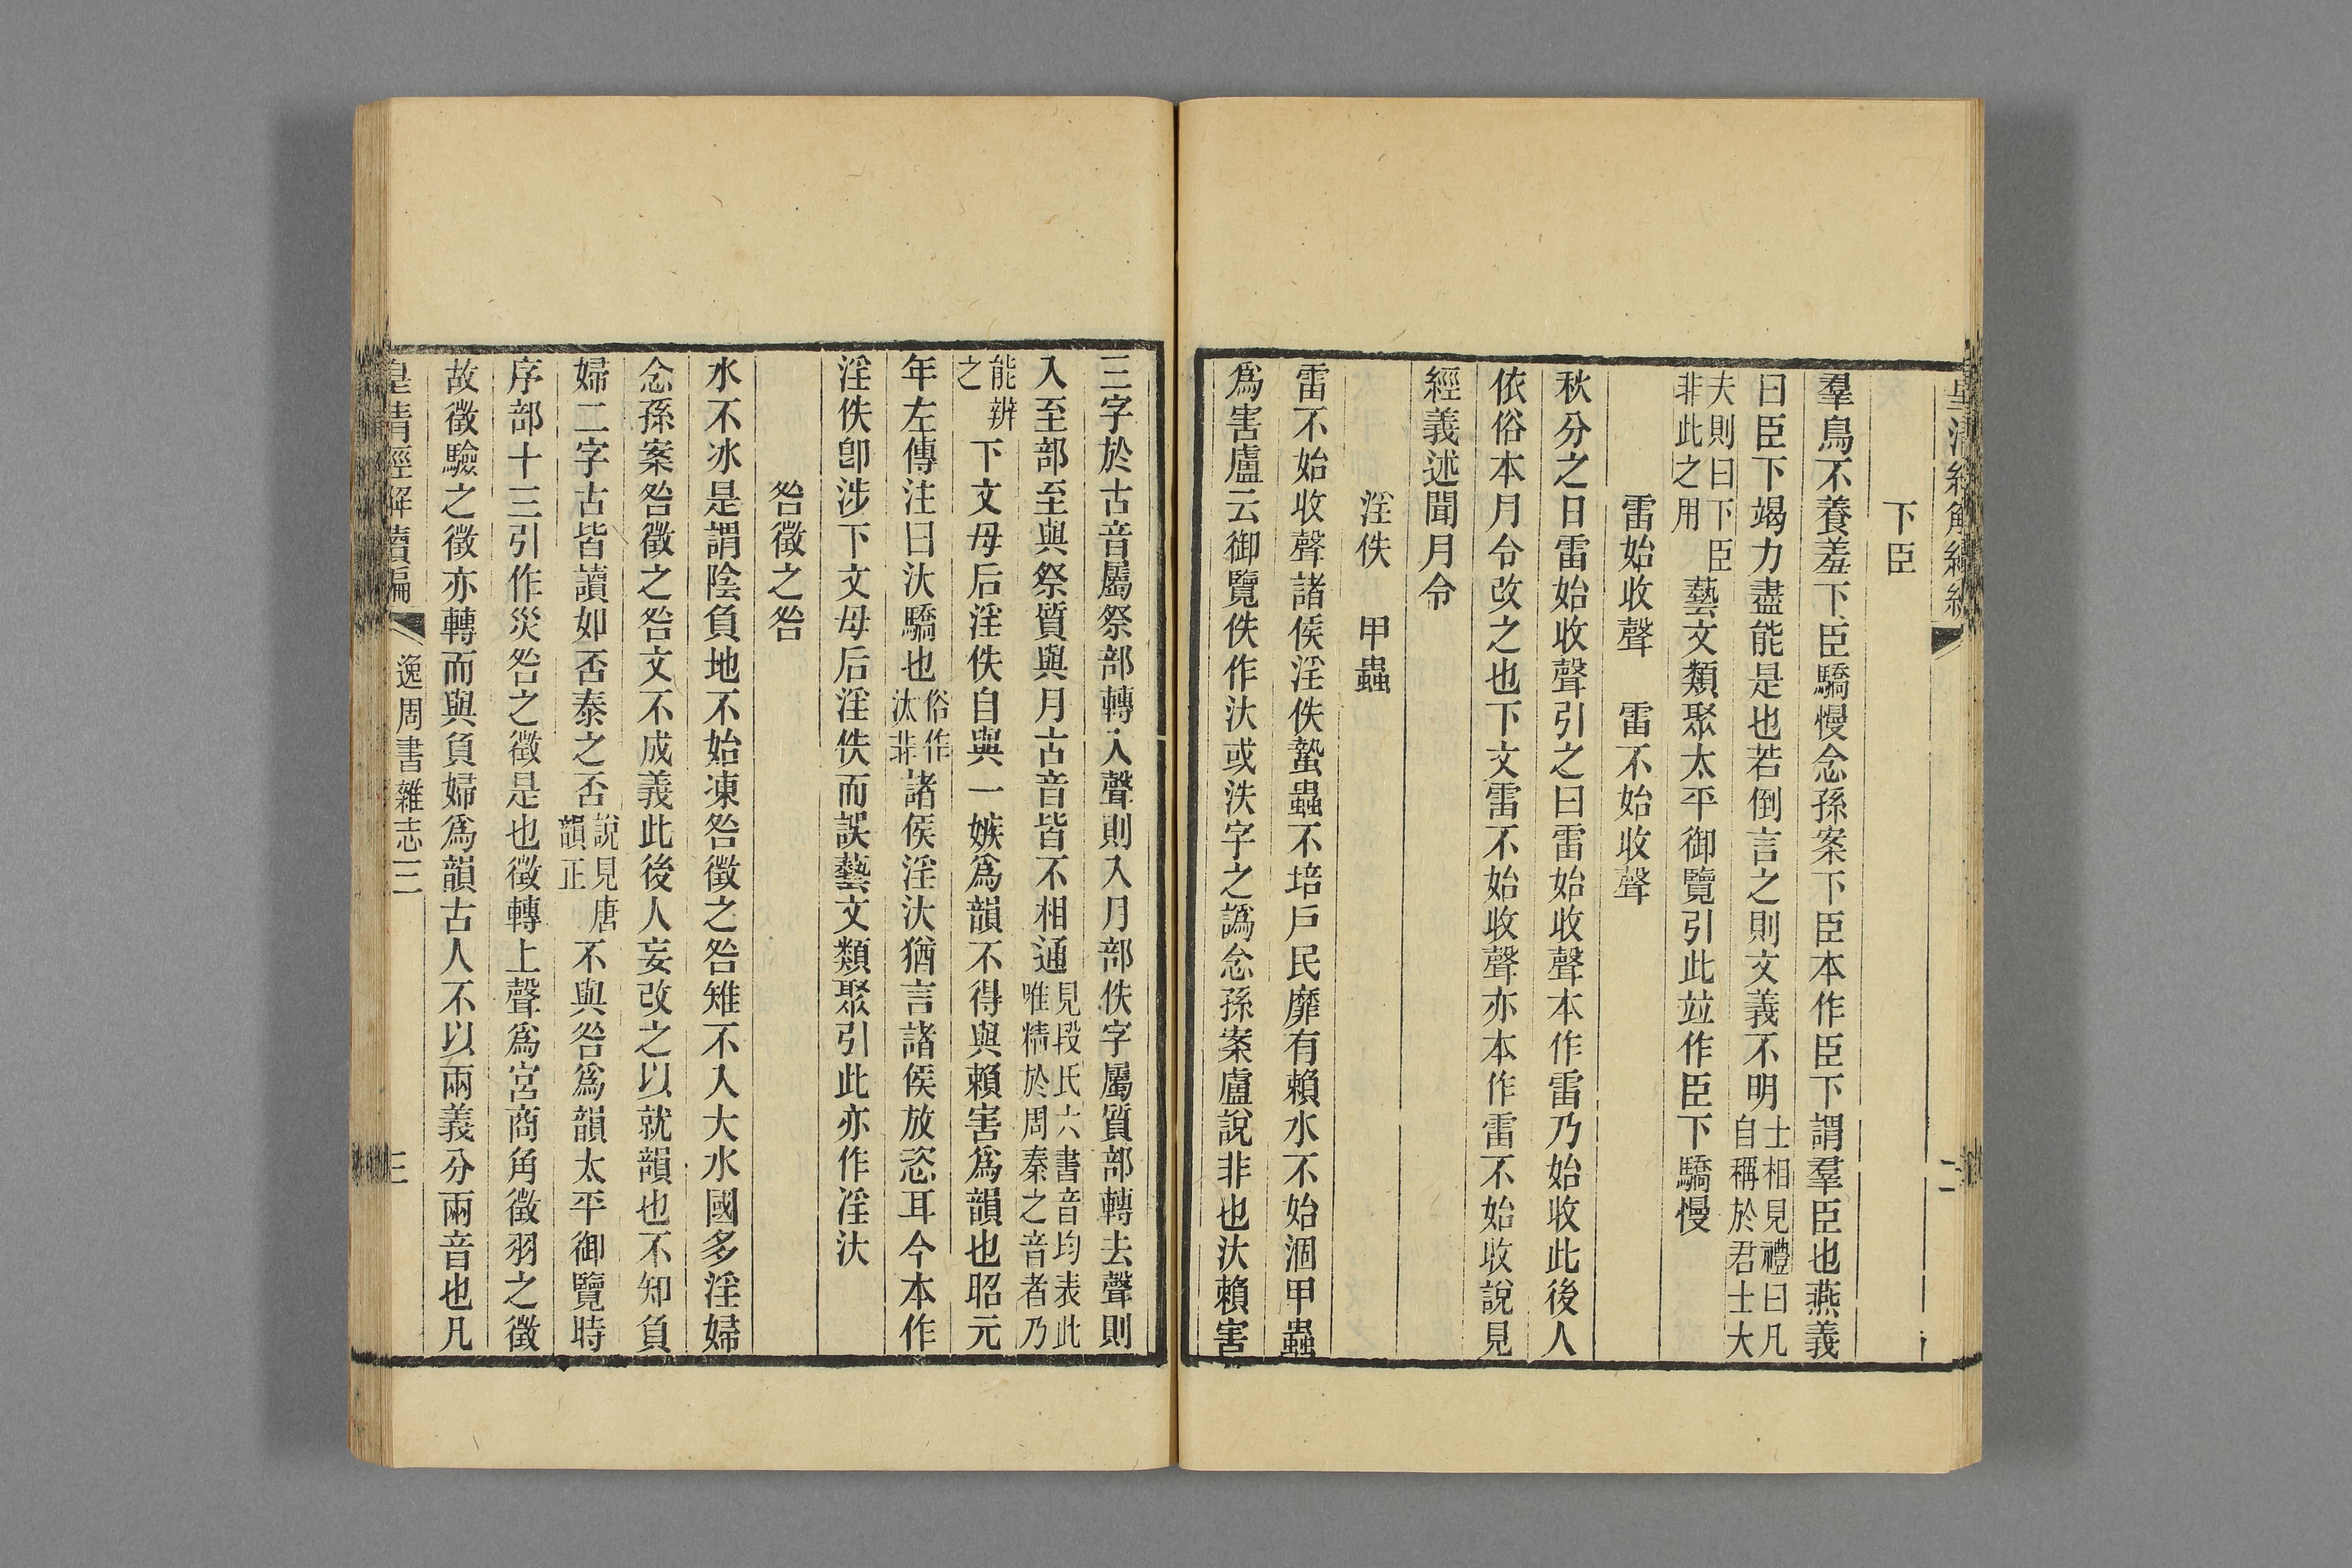 下臣
羣鳥不養羞下臣驕慢念孫案下臣本作臣下謂羣臣也燕義
曰臣下竭力盡能是也若倒言之則文義不明士相見禮曰凡自稱於君士大
夫則曰下臣非此之用藝文類聚太平御覽引此竝作臣下驕慢
雷始收聲　雷不始收聲
秋分之日雷始收聲引之曰雷始收聲本作雷乃始收此後人
依俗本月令改之也下文雷不始收聲亦本作雷不始收說見
經義述聞月令
淫佚　甲蟲
雷不始收聲諸侯淫佚蟄蟲不培戶民靡有賴水不始涸甲蟲
爲害盧云御覽佚作汏或泆字之譌念孫案盧說非也汏賴害
三字於古音屬祭部轉入聲則入月部佚字屬質部轉去聲則
入至部至與祭質與月古音皆不相通見段氏六書音均表此唯精於周秦之音者乃
能辨之下文母后淫佚自與一嫉爲韻不得與賴害爲韻也昭元
年左傳注曰汏驕也俗作汰非諸侯淫汏猶言諸侯放恣耳今本作
淫佚卽涉下文母后淫佚而誤藝文類聚引此亦作淫汏
咎徵之咎
水不冰是謂陰負地不始凍咎徵之咎雉不入大水國多淫婦
念孫案咎徵之咎文不成義此後人妄改之以就韻也不知負
婦二字古皆讀如否泰之否說見唐韻正不與咎爲韻太平御覽時
序部十三引作災咎之徵是也徵轉上聲爲宮商角徵羽之徵
故徵驗之徵亦轉而與負婦爲韻古人不以兩義分兩音也凡
皇清經解續編　逸周書雜志三　三